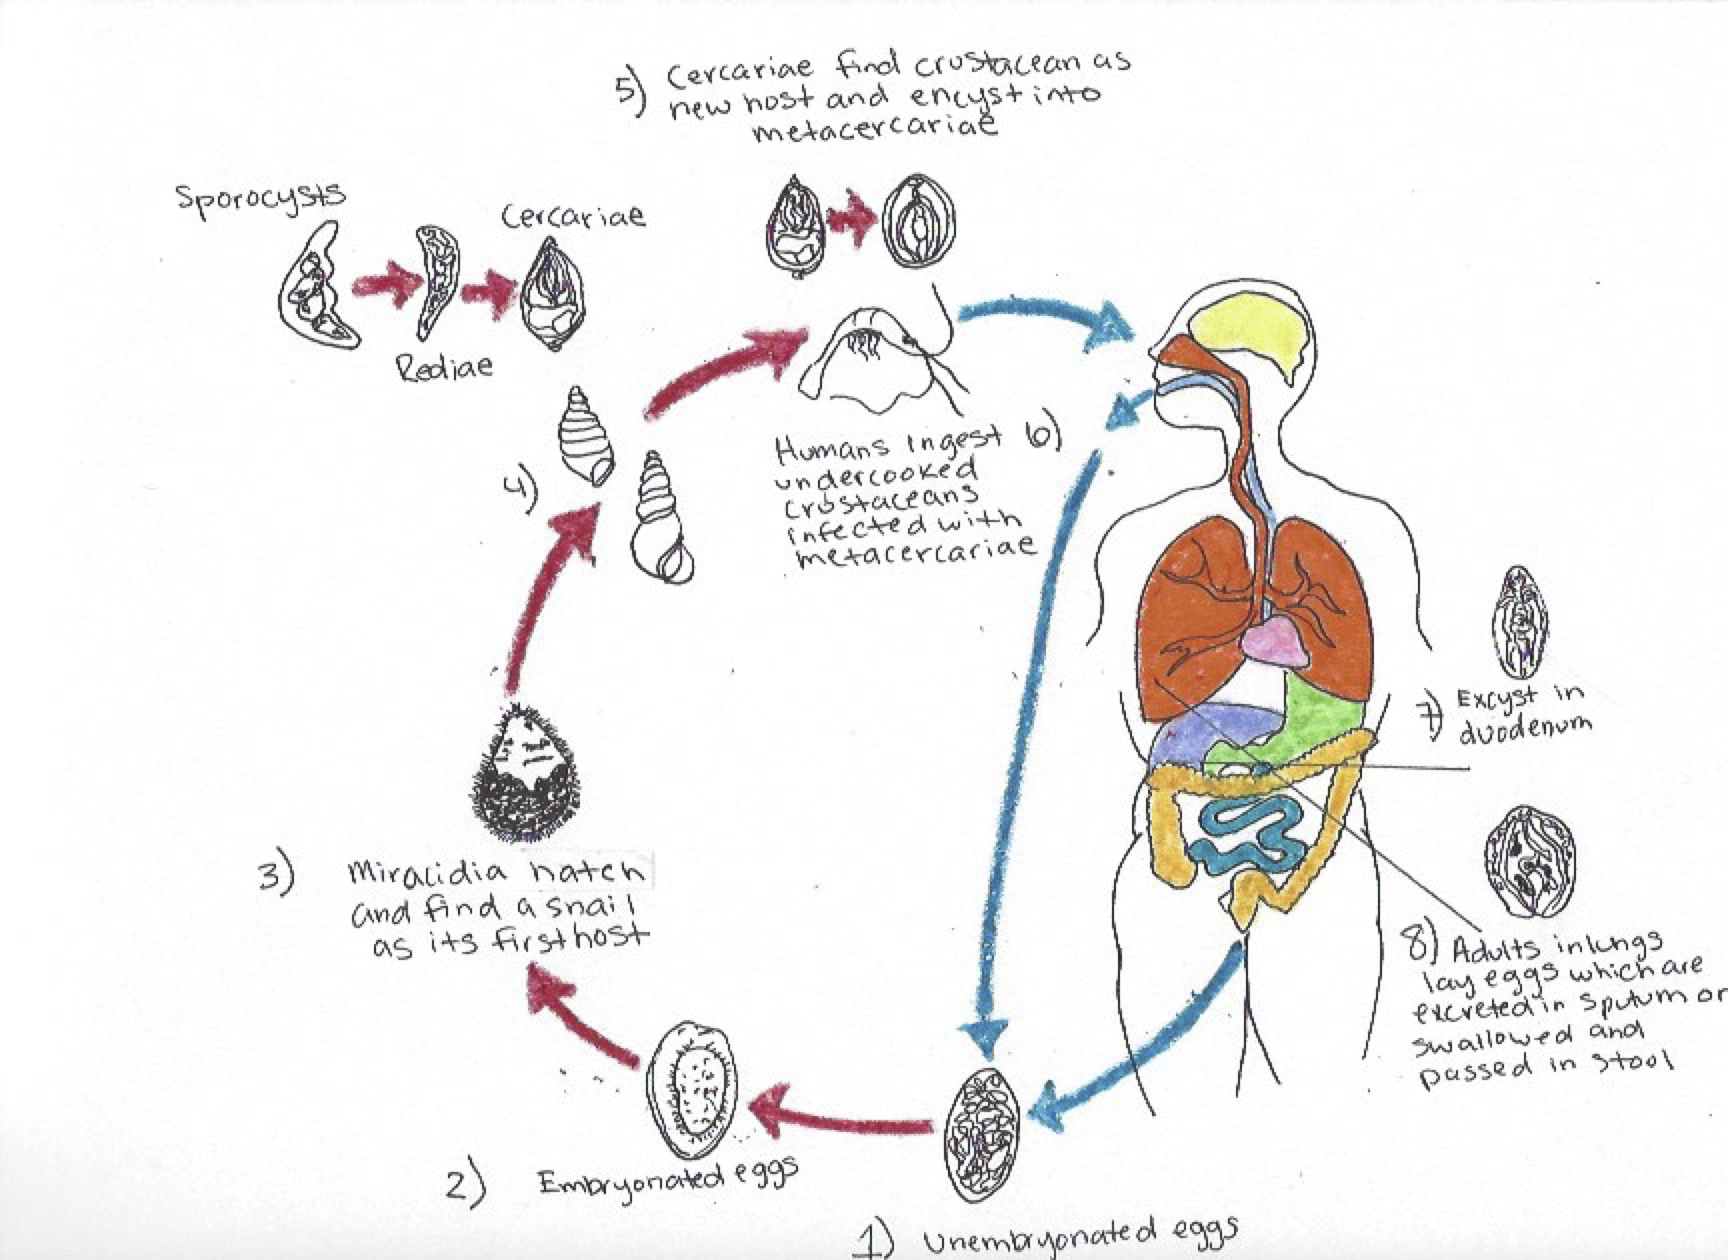 5) Cercariae find crustacean as
new host and encyst into
metacercariae
Sporocysts
Cercariae
Rediae
4)
Humans Ingest 6)
undercooked
crustaceans
infected with
metacercariae
7) Excyst in
duodenum
3) Miracidia hatch
and find a snail
as its first host
8) Adults in lungs
lay eggs which are
excreted in sputum or
swallowed and
passed in stool
2) Embryonated eggs
1) Unembryonated eggs